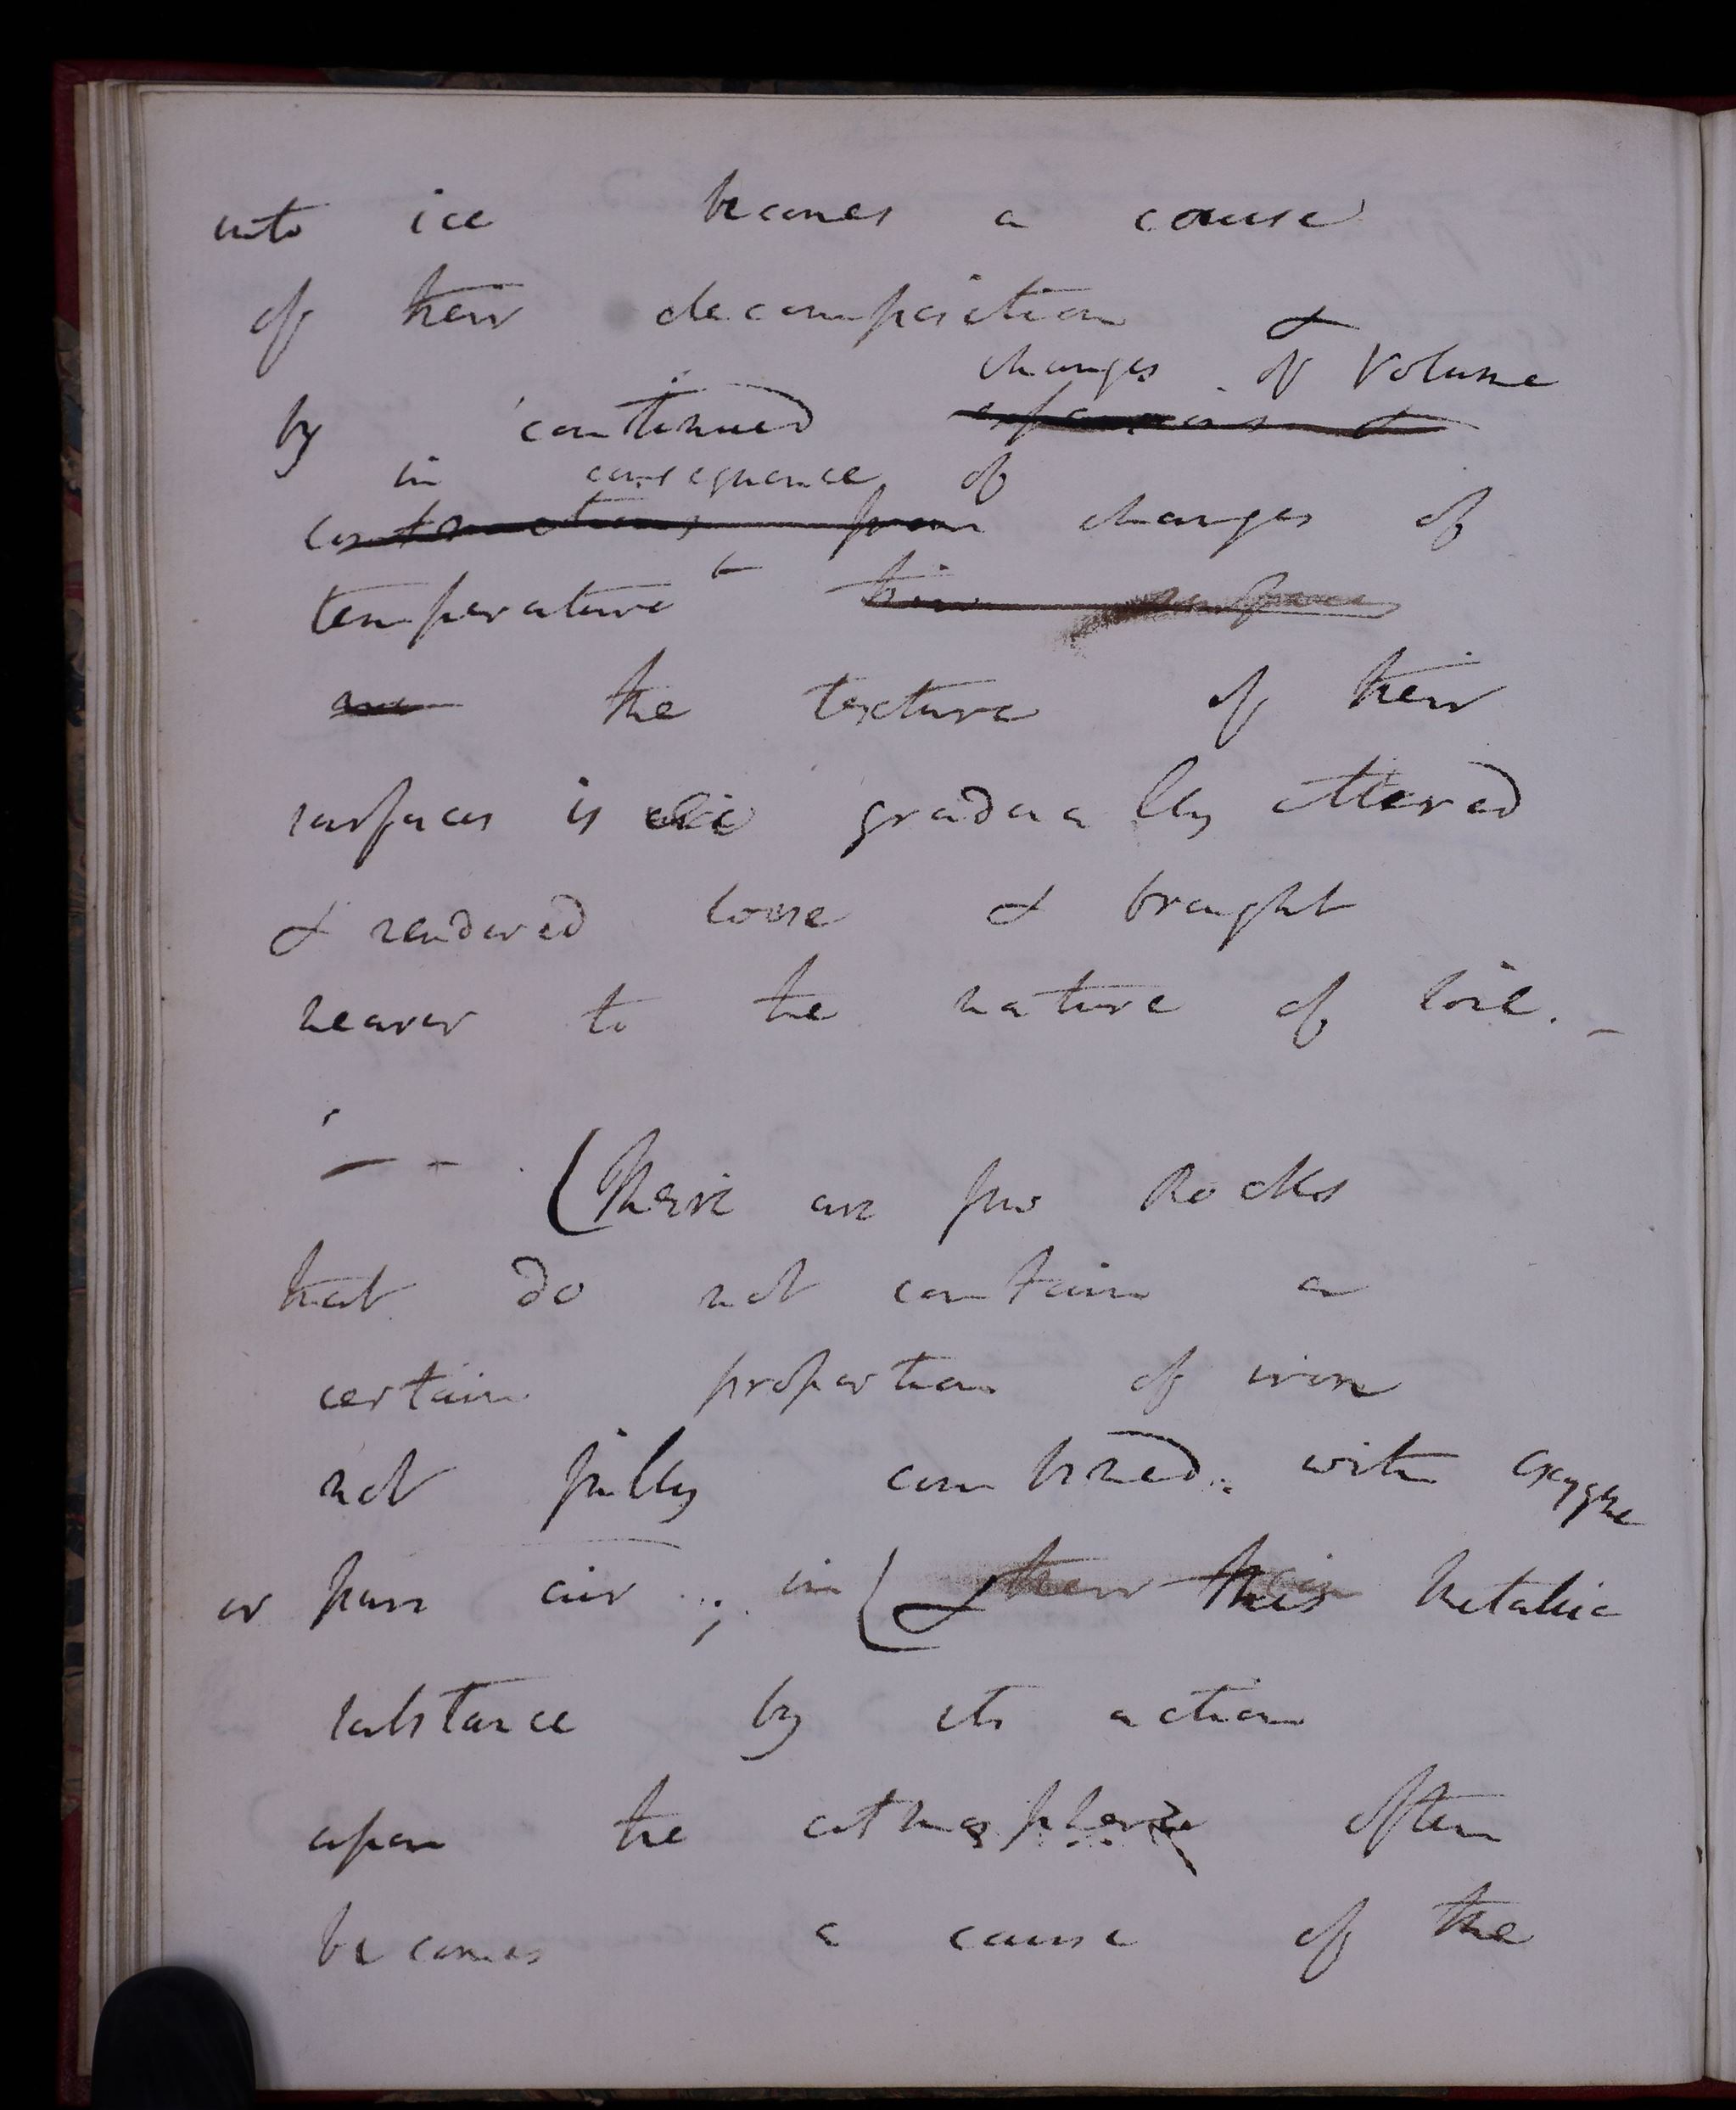 into ice becomes a cause
of their decomposition &
changes of Volume
by continued expansions &
in consequence of
contractions from changes of
temperature their surfaces
are the texture of their
surfaces is gradually altered
& rendered loose & brought
nearer to the nature of soil. -
- - (There are few Rocks
that do not contain a
certain proportion of iron
not fully combined with oxygene
or pure air ; in ( & their this Metallic
substance by its action
upon the atmosphere often
becomes a cause of the